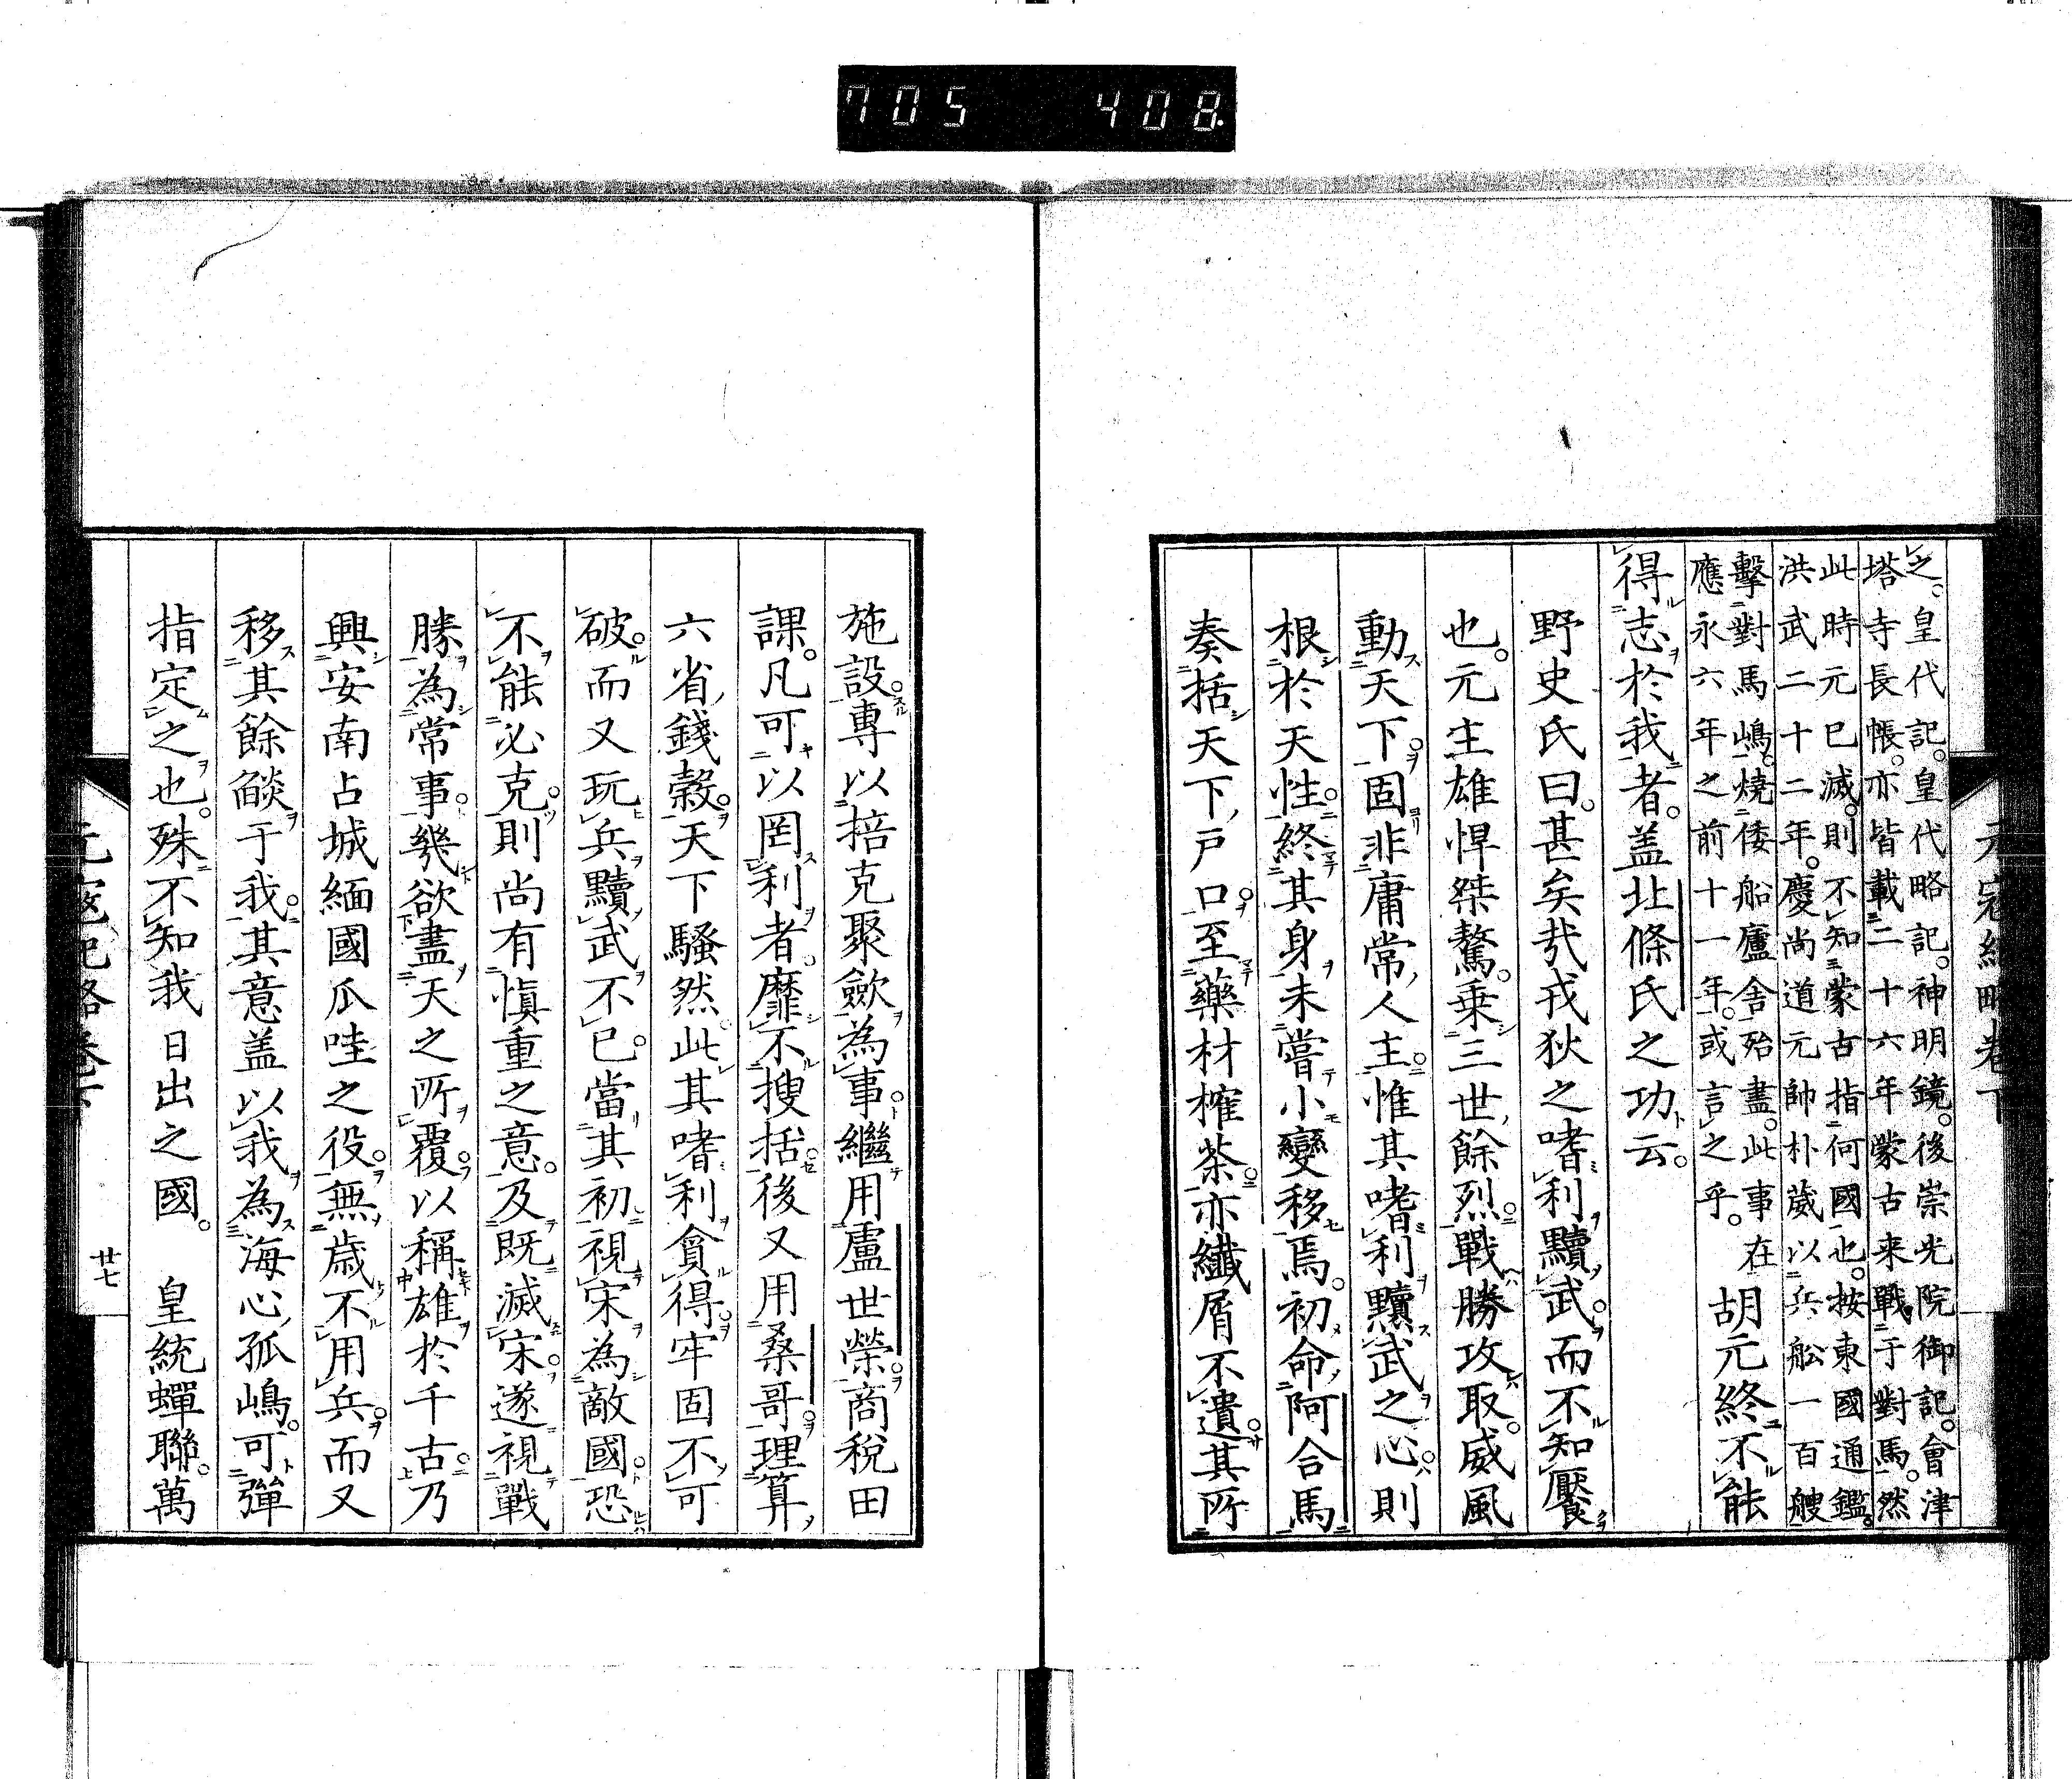 705 408
元寇紀略卷下
之。皇代記。皇代略記。神明鏡。後崇光院御記。會津
塔寺長帳。亦皆載二十六年蒙古来戰于對馬。然
此時元已滅。則不知蒙古指何國也。按東國通鑑。
洪武二十二年。慶尚道元帥朴葳以兵船一百艘
擊對馬嶋。燒倭船廬舍殆盡。此事在
應永六年之前十一年。或言之乎。
胡元終不能
得志於我者。盖北條氏之功云。
野史氏曰。甚矣哉戎狄之嗜利黷武。而不知饜
也。元主雄悍桀驁。乗三世餘烈戰勝攻取。威風
動天下固非庸常人主。惟其嗜利黷武之心。則
根於天性。終其身未嘗小變移焉。初命阿合馬
奏括天下戶口。至藥材榷茶。亦纖屑不遺。其所
施設。專以掊克聚歛為事。繼用盧世榮。商稅田
課。凡可以罔利者。靡不搜括。後又用桑哥。理算
六省錢穀。天下騷然。此其嗜利貪得。牢固不可
破。而又玩兵黷武不已。當其初視宋為敵國。恐
不能必克。則尚有愼重之意。及既滅宋。遂視戰
勝為常事。幾欲盡天之所覆。以稱雄於千古。乃
興安南占城緬國瓜哇之役。無歲不用兵。而又
移其餘燄于我。其意盖以我為海心孤嶋。可彈
指定之也。殊不知我日出之國。　皇統蟬聯。萬
元寇紀略卷下
廿七